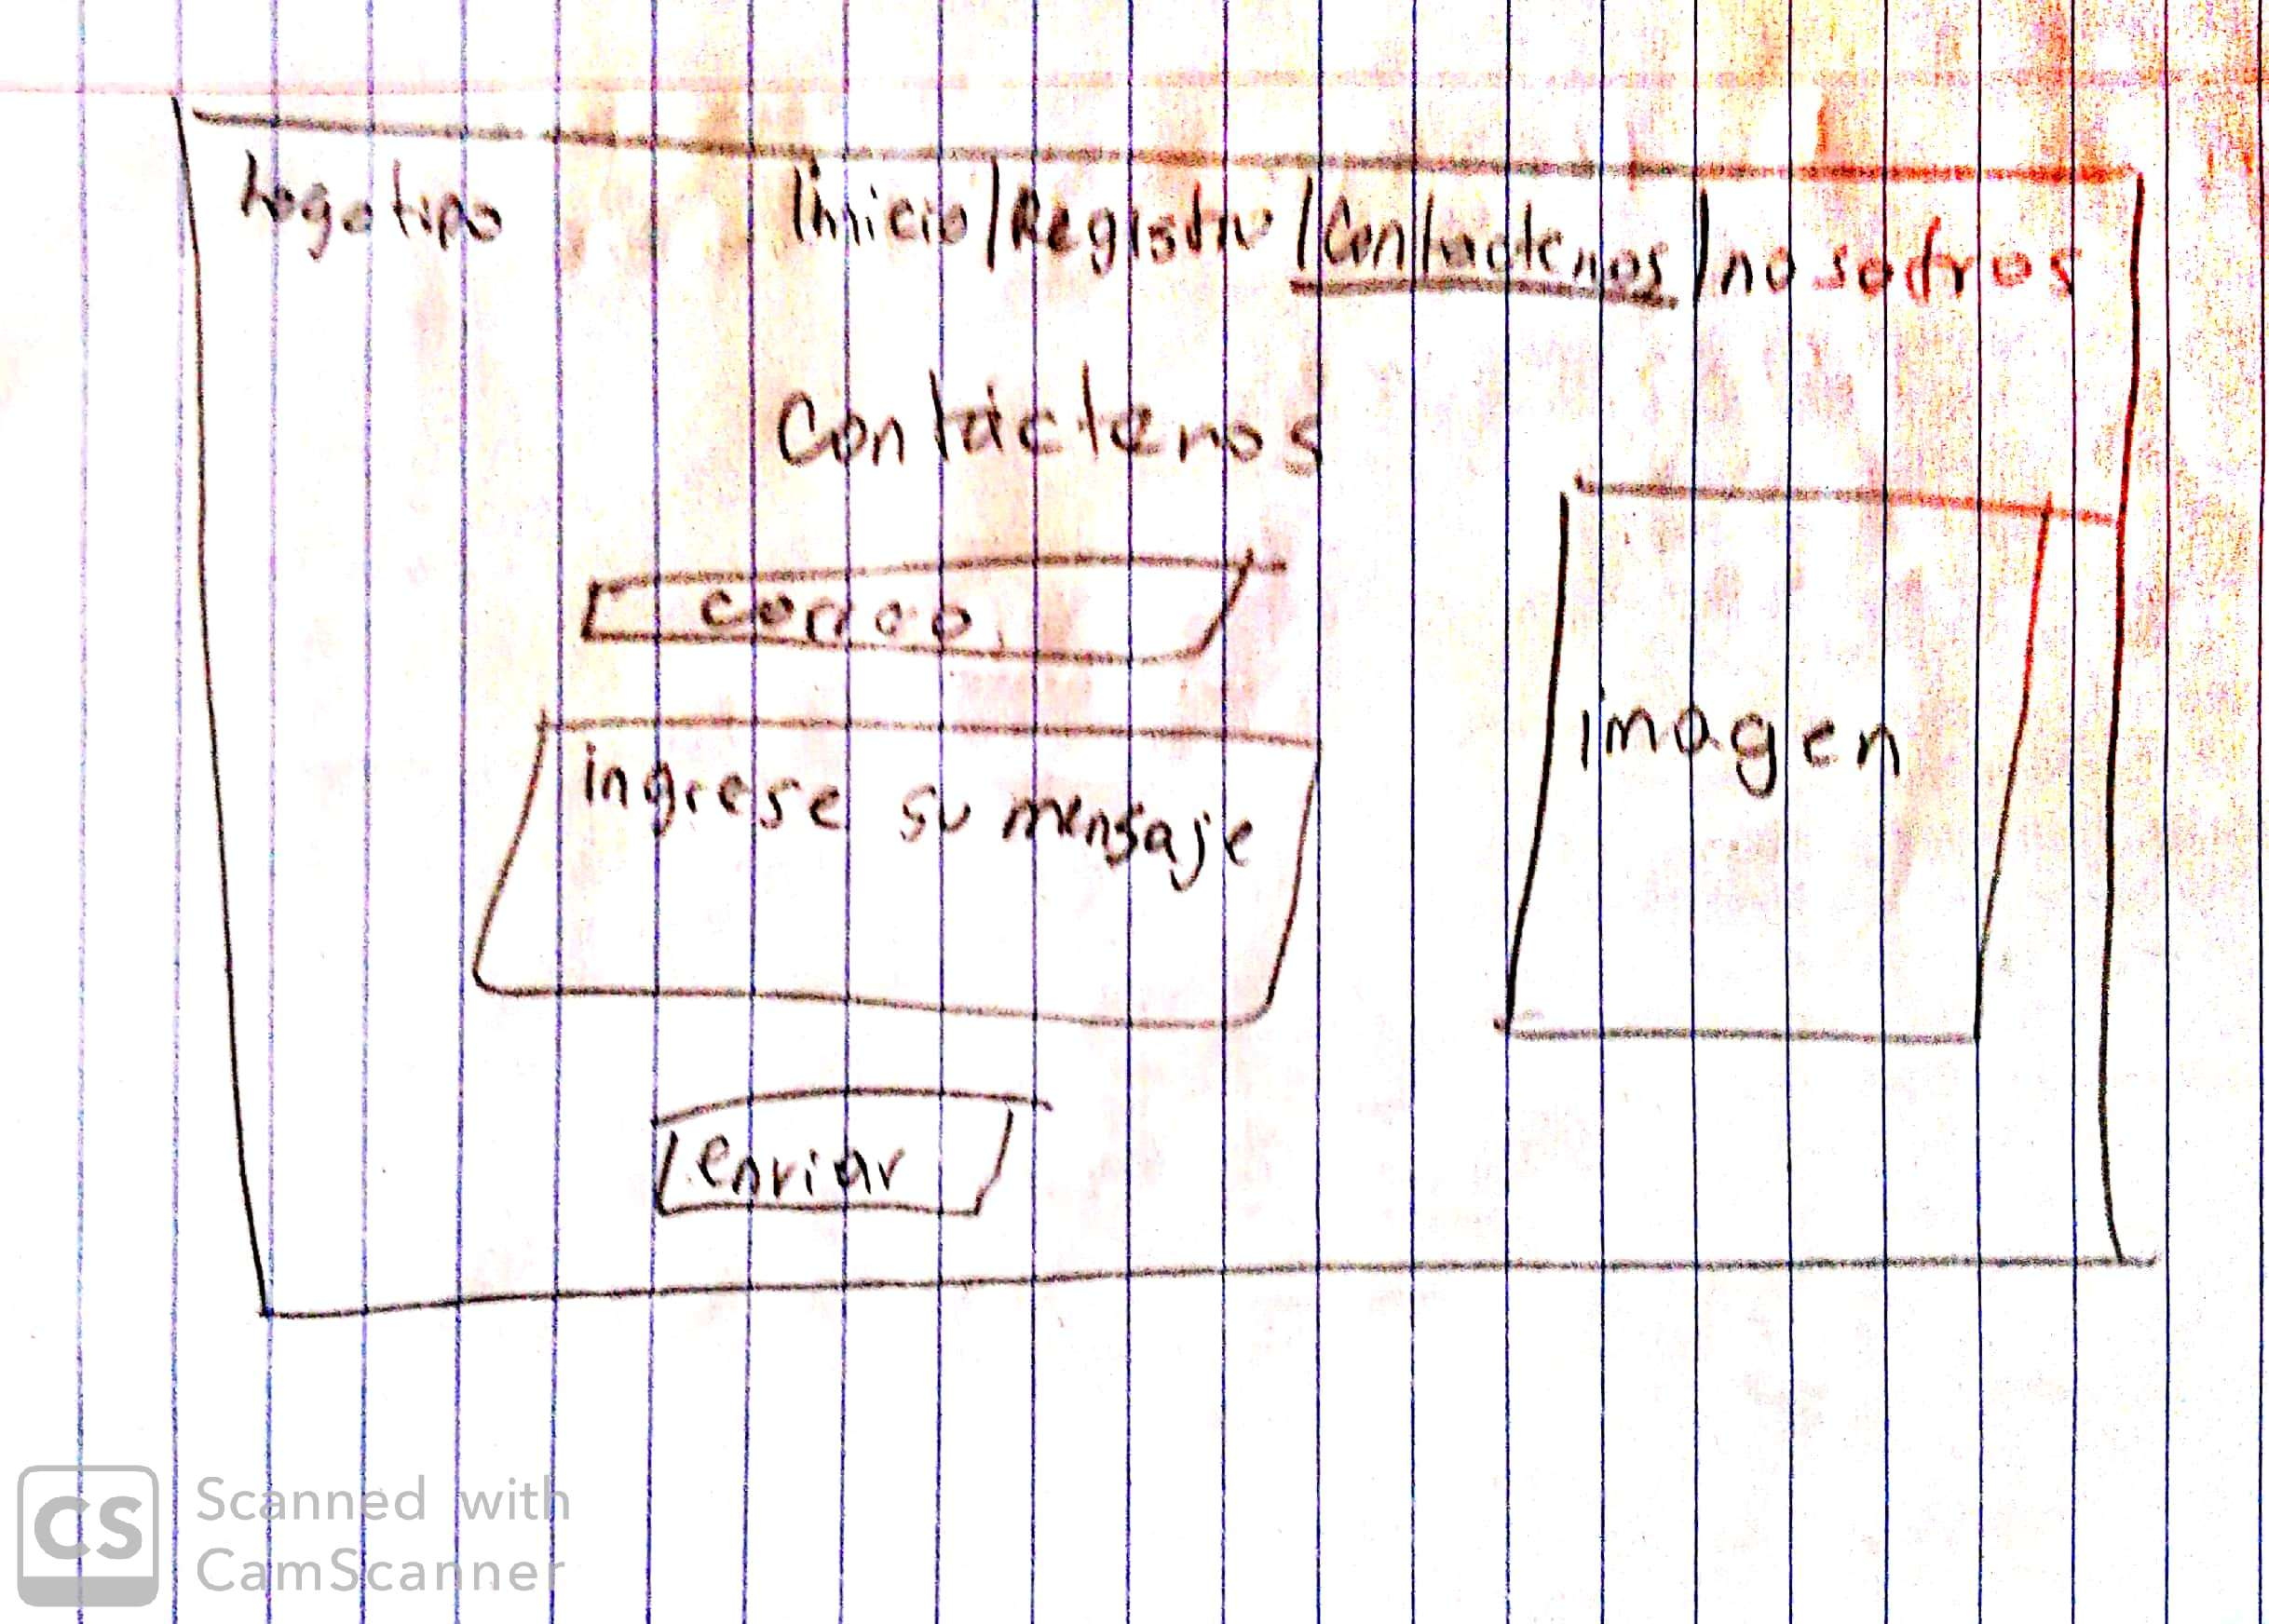 Logotipo
Inicio/Registro/Contactenos/nosotros
Contáctenos
correo
ingrese su mensaje
imagen
enviar
CS
Scanned with
CamScanner